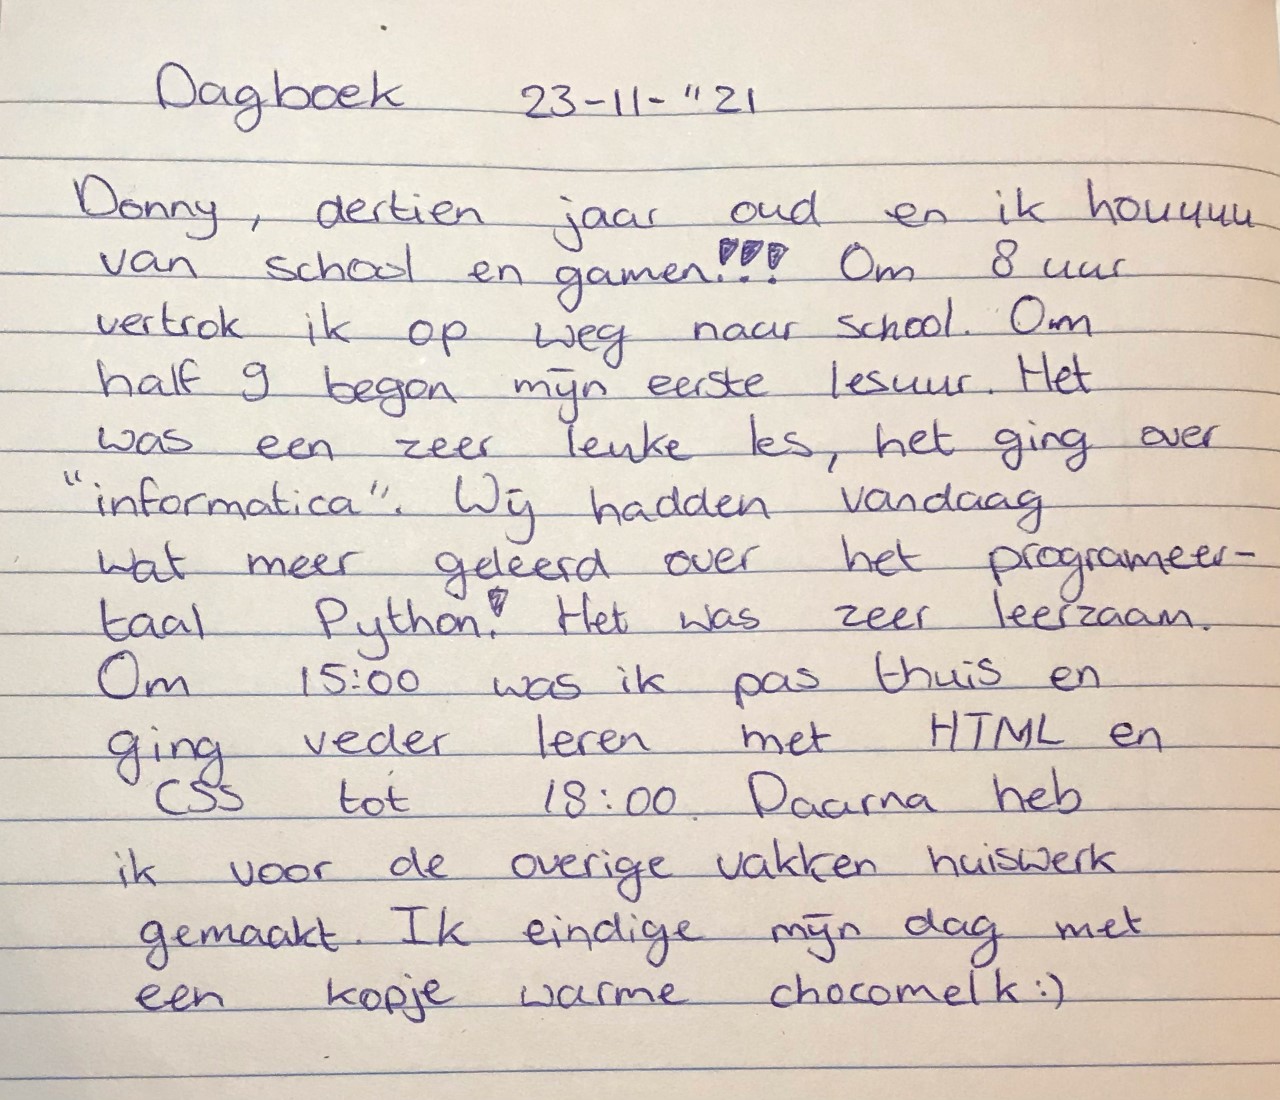 Dagboek 23-11-"21
Donny, dertien jaar oud en ik houuuu
van school en gamen!!! Om 8 uur
vertrok ik op weg naar school. Om
half 9 begon mijn eerste lesuur. Het
was een zeer leuke les, het ging over
"informatica". Wij hadden vandaag
wat meer geleerd over het programeer-
taal Python! Het was zeer leerzaam.
Om 15:00 was ik pas thuis en
ging veder leren met HTML en
CSS tot 18:00. Daarna heb
ik voor de overige vakken huiswerk
gemaakt. Ik eindige mijn dag met
een kopje warme chocomelk:)